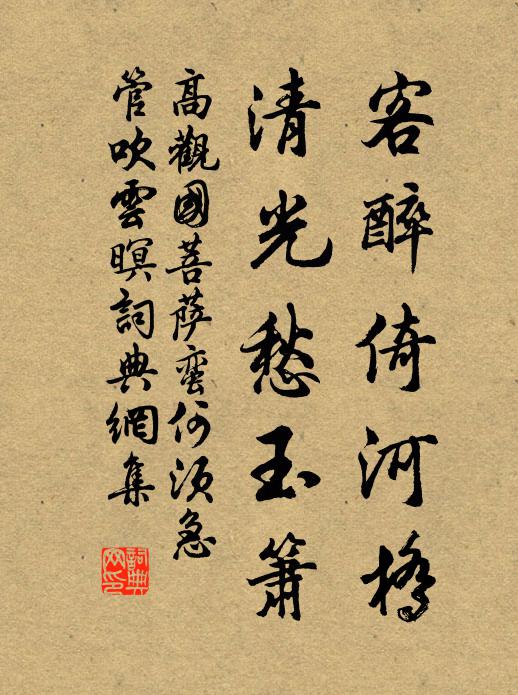 客醉倚河橋
清光愁玉簫
高觀國菩薩蠻何須急
管吹雲暝詞典網集
詞典
网印